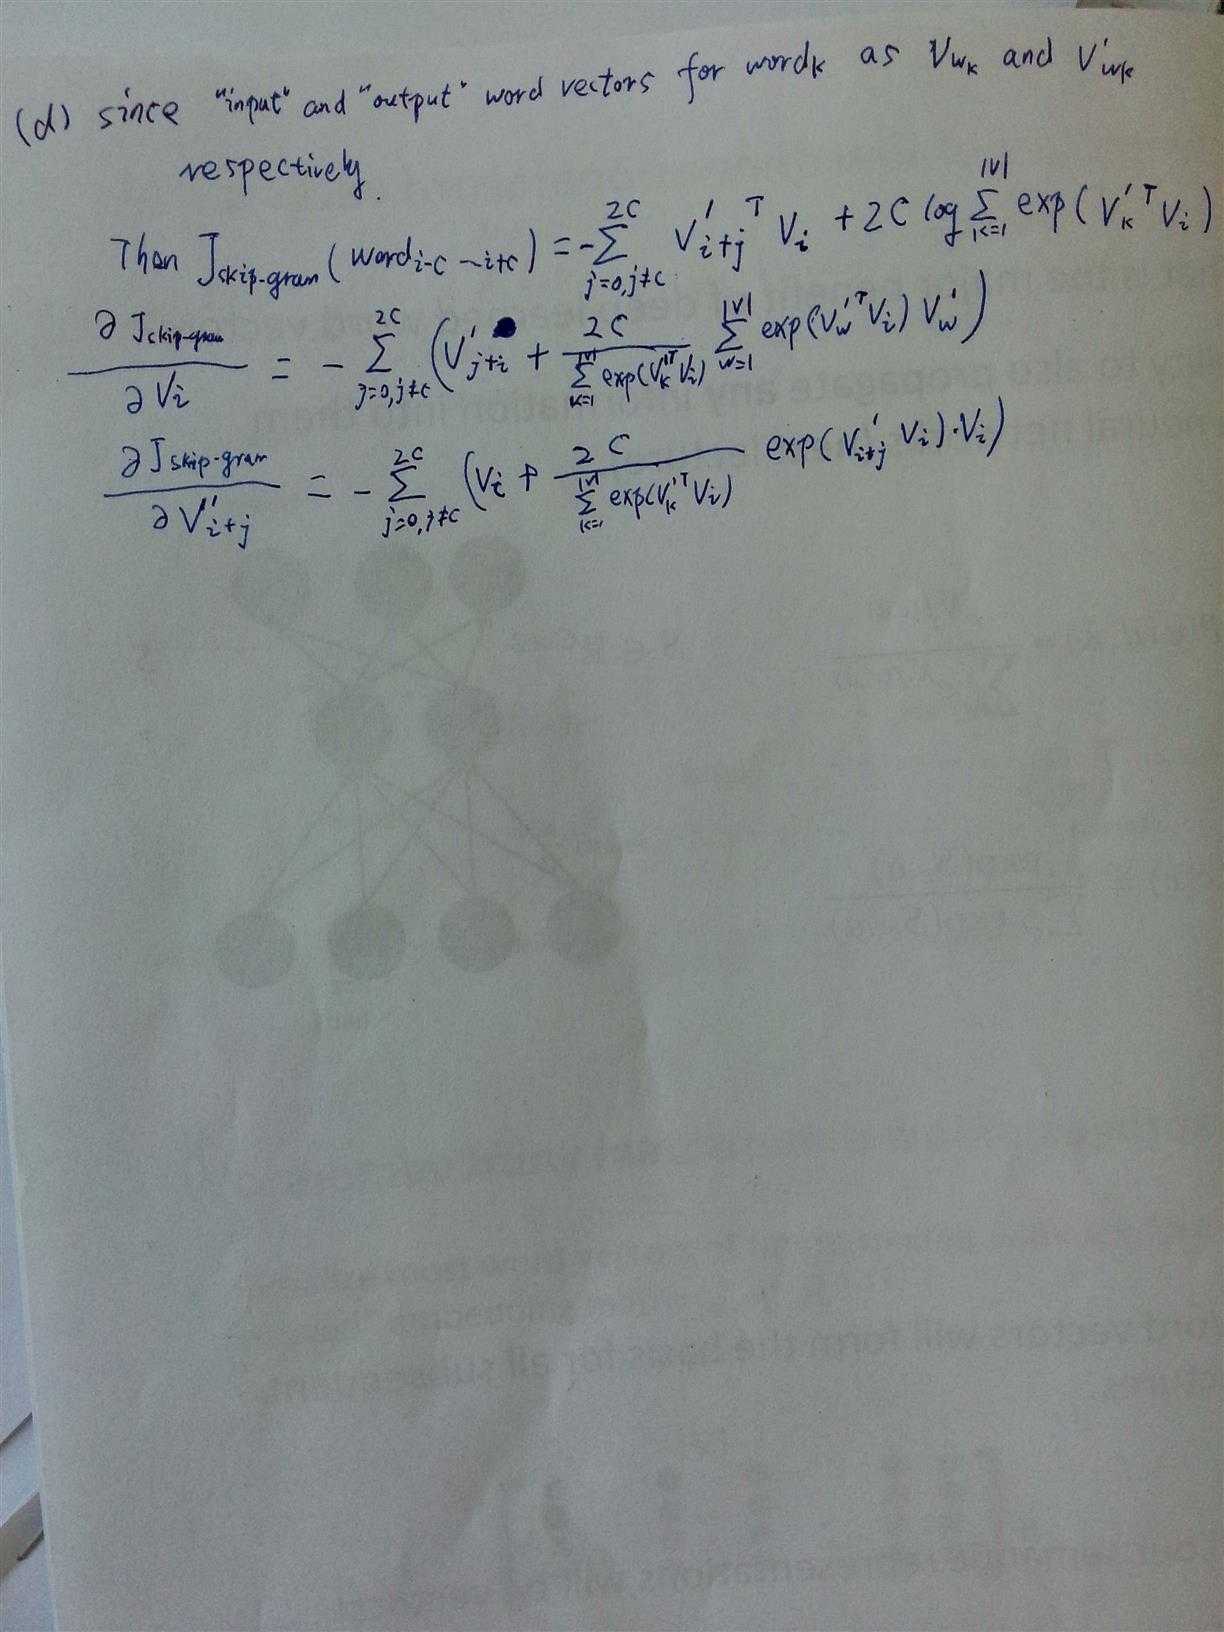 (d) since "input" and "output" word vectors for word_k as V_{w_k} and V'_{w_k}
respectively.
Then J_{skip-gram}(word_{i-C ~ i+C}) = -\sum_{j=0, j≠C}^{2C} V'_{i+j}^T V_i + 2C log \sum_{k=1}^{|V|} exp(V'_k^T V_i)
∂J_{skip-gram} / ∂V_i = -\sum_{j=0, j≠C}^{2C} (V'_{j+i} + \frac{2C}{\sum_{k=1}^{|V|} exp(V'_k^T V_i)} \sum_{w=1}^{|V|} exp(V'_w^T V_i) V'_w)
∂J_{skip-gram} / ∂V'_{i+j} = -\sum_{j=0, j≠C}^{2C} (V_i + \frac{2C}{\sum_{k=1}^{|V|} exp(V'_k^T V_i)} exp(V'_{i+j} V_i) · V_i)